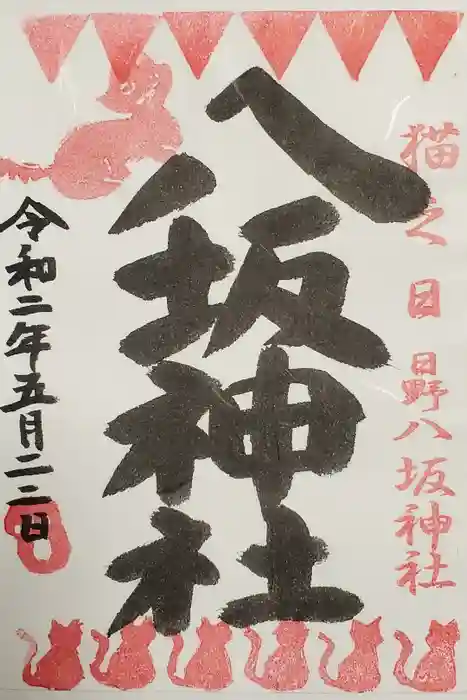 猫之日 日野八坂神社
八坂神社
令和二年五月二二日